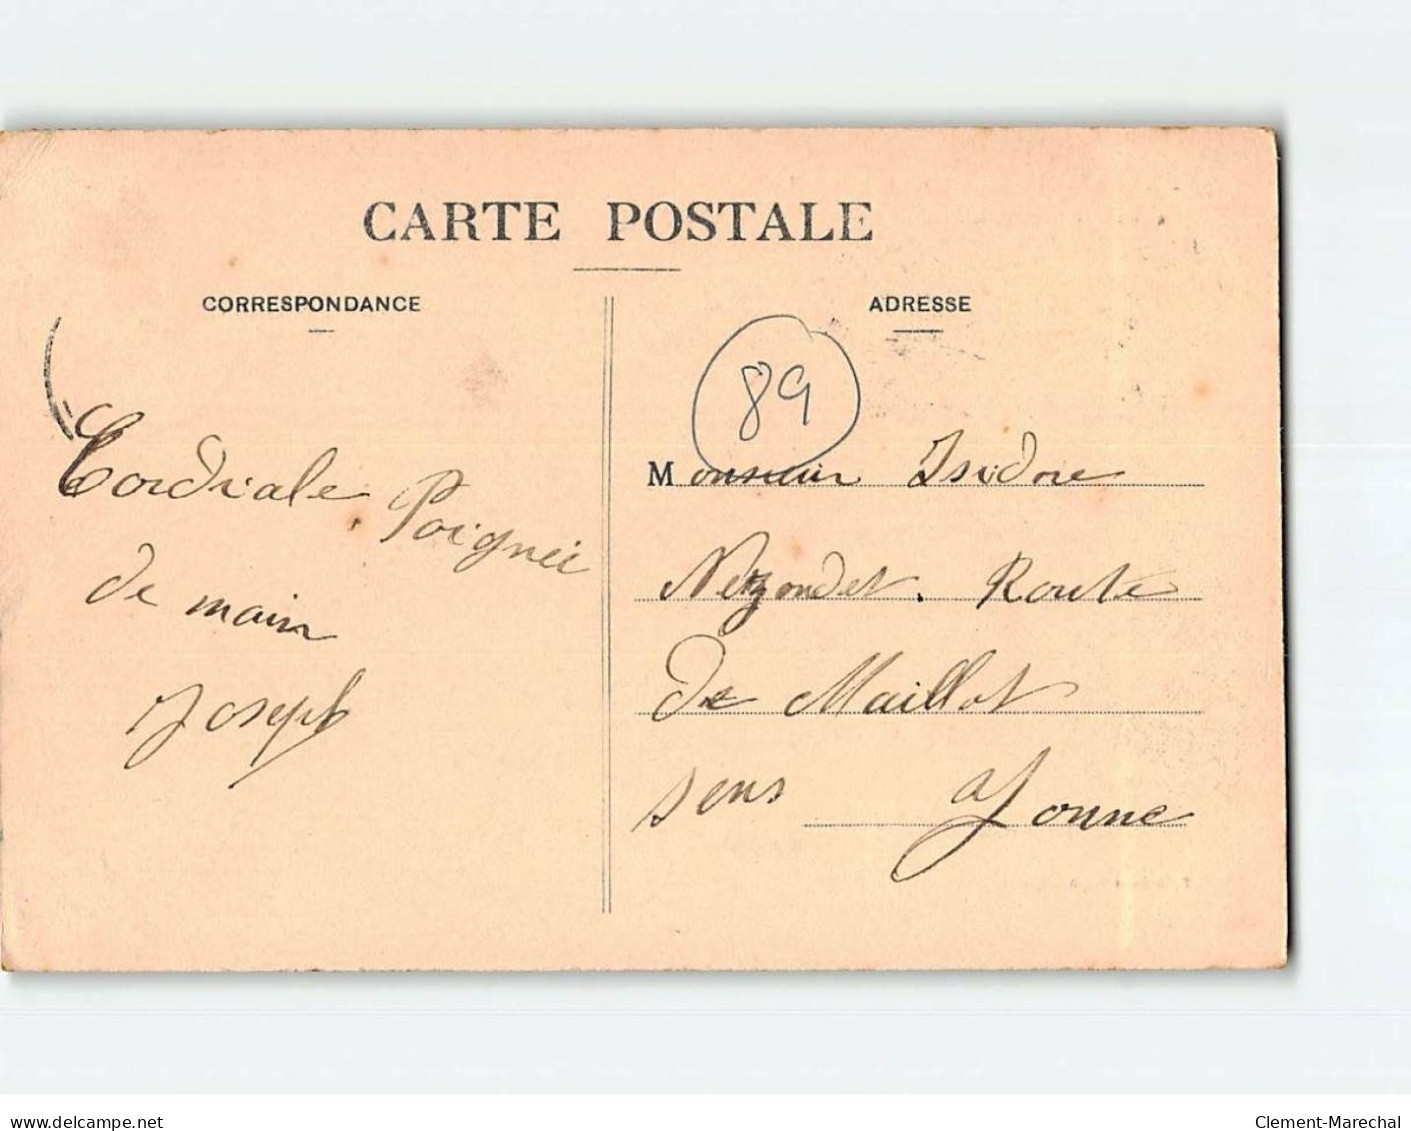 CARTE POSTALE
CORRESPONDANCE
ADRESSE
89
Cordiale Poignée
de main
Joseph
Monsieur Isidore
Route
de Maillot
Sens Yonne
www.delcampe.net
Clement-Marechal